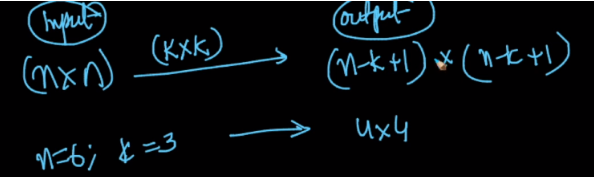 Input Output
(n×n) (k×k) → (n-k+1) × (n-k+1)
n=6; k=3 → 4×4